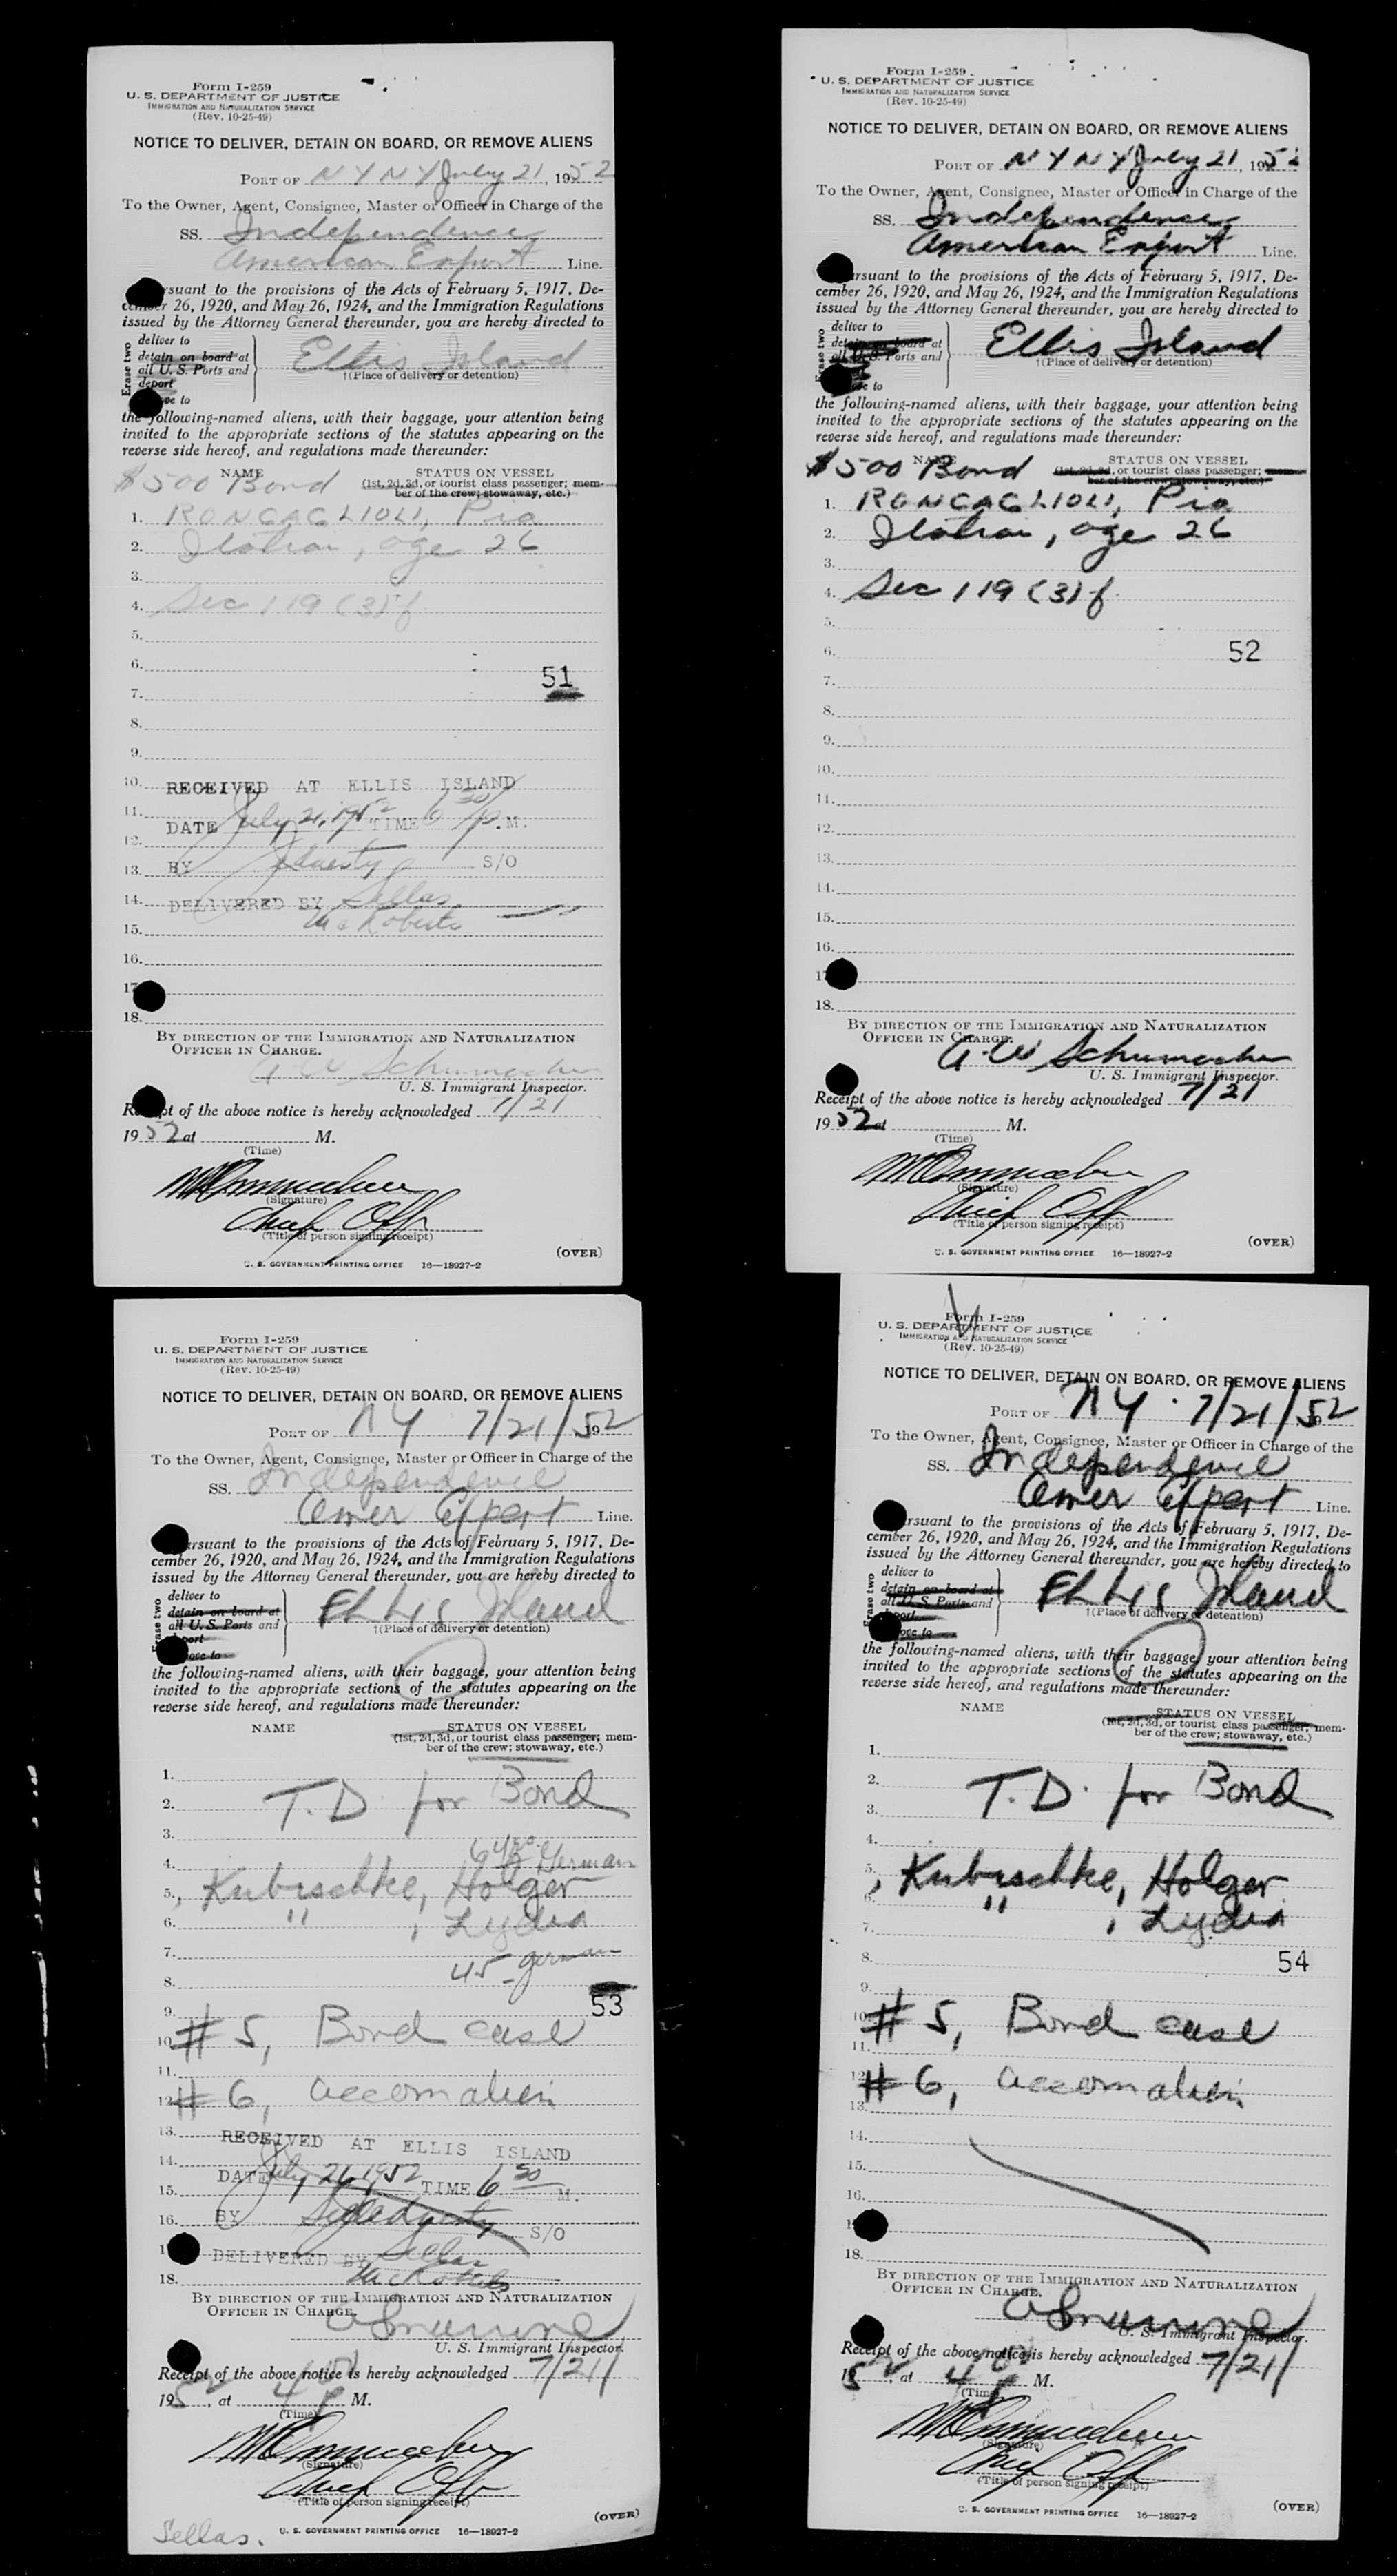 Form I-259
U. S. DEPARTMENT OF JUSTICE
IMMIGRATION AND NATURALIZATION SERVICE
(Rev. 10-25-49)
NOTICE TO DELIVER, DETAIN ON BOARD, OR REMOVE ALIENS
PORT OF N Y N Y July 21, 1952
To the Owner, Agent, Consignee, Master or Officer in Charge of the
SS. Independence
American Export Line.
rsuant to the provisions of the Acts of February 5, 1917, De-
cember 26, 1920, and May 26, 1924, and the Immigration Regulations
issued by the Attorney General thereunder, you are hereby directed to
Erase two
deliver to
detain on board at
all U. S. Ports and
deport
ve to
Ellis Island
†(Place of delivery or detention)
the following-named aliens, with their baggage, your attention being
invited to the appropriate sections of the statutes appearing on the
reverse side hereof, and regulations made thereunder:
NAME STATUS ON VESSEL
$500 Bond (1st, 2d, 3d, or tourist class passenger; mem-
ber of the crew; stowaway, etc.)
1. RONCAGLIOLI, Pia
2. Italian, age 26
3.
4. Sec 119 (3) f
5.
6.
51
7.
8.
9.
10. RECEIVED AT ELLIS ISLAND
11. DATE July 21, 1952 TIME 6 30 P.M.
12.
13. BY S/O
14. DELIVERED BY Sellas
15. McRoberts
16.
17
18.
BY DIRECTION OF THE IMMIGRATION AND NATURALIZATION
OFFICER IN CHARGE.
A W Schumacher
U. S. Immigrant Inspector.
Receipt of the above notice is hereby acknowledged 7/21
1952 at M.
(Time)
(Signature)
Chief Off
(Title of person signing receipt)
(OVER)
U. S. GOVERNMENT PRINTING OFFICE 16—18927-2
Form I-259
U. S. DEPARTMENT OF JUSTICE
IMMIGRATION AND NATURALIZATION SERVICE
(Rev. 10-25-49)
NOTICE TO DELIVER, DETAIN ON BOARD, OR REMOVE ALIENS
PORT OF N Y N Y July 21, 1952
To the Owner, Agent, Consignee, Master or Officer in Charge of the
SS. Independence
American Export Line.
rsuant to the provisions of the Acts of February 5, 1917, De-
cember 26, 1920, and May 26, 1924, and the Immigration Regulations
issued by the Attorney General thereunder, you are hereby directed to
Erase two
deliver to
detain on board at
all U. S. Ports and
ve to
Ellis Island
†(Place of delivery or detention)
the following-named aliens, with their baggage, your attention being
invited to the appropriate sections of the statutes appearing on the
reverse side hereof, and regulations made thereunder:
NAME STATUS ON VESSEL
$500 Bond (1st, 2d, 3d, or tourist class passenger; mem-
ber of the crew; stowaway, etc.)
1. RONCAGLIOLI, Pia
2. Italian, age 26
3.
4. Sec 119 (3) f
5.
6. 52
7.
8.
9.
10.
11.
12.
13.
14.
15.
16.
17
18.
BY DIRECTION OF THE IMMIGRATION AND NATURALIZATION
OFFICER IN CHARGE.
A. W Schumacher
U. S. Immigrant Inspector.
Receipt of the above notice is hereby acknowledged 7/21
1952 at M.
(Time)
(Signature)
Chief Off
(Title of person signing receipt)
(OVER)
U. S. GOVERNMENT PRINTING OFFICE 16—18927-2
Form I-259
U. S. DEPARTMENT OF JUSTICE
IMMIGRATION AND NATURALIZATION SERVICE
(Rev. 10-25-49)
NOTICE TO DELIVER, DETAIN ON BOARD, OR REMOVE ALIENS
PORT OF NY 7/21/52 19
To the Owner, Agent, Consignee, Master or Officer in Charge of the
SS. Independence
Amer Export Line.
rsuant to the provisions of the Acts of February 5, 1917, De-
cember 26, 1920, and May 26, 1924, and the Immigration Regulations
issued by the Attorney General thereunder, you are hereby directed to
Erase two
deliver to
detain on board at
all U. S. Ports and
port
ove to
Ellis Island
†(Place of delivery or detention)
the following-named aliens, with their baggage, your attention being
invited to the appropriate sections of the statutes appearing on the
reverse side hereof, and regulations made thereunder:
NAME STATUS ON VESSEL
(1st, 2d, 3d, or tourist class passenger; mem-
ber of the crew; stowaway, etc.)
1.
2. T.D. for Bond
3.
4. 6 yrs. German
5. Kubischke, Holger
6. " , Lydia
7.
8. 45 - german
53
9.
10. # 5, Bond case
11.
12. # 6, accom alien
13. RECEIVED AT ELLIS ISLAND
14. DATE July 21, 1952 TIME 6 30 M.
15.
16. BY S/O
1 DELIVERED BY Sellas
18. McRoberts
BY DIRECTION OF THE IMMIGRATION AND NATURALIZATION
OFFICER IN CHARGE.
U. S. Immigrant Inspector.
Receipt of the above notice is hereby acknowledged 7/21/
1952, at 4 00 P M.
(Time)
(Signature)
Chief Off
(Title of person signing receipt)
(OVER)
Sellas.
U. S. GOVERNMENT PRINTING OFFICE 16—18927-2
Form I-259
U. S. DEPARTMENT OF JUSTICE
IMMIGRATION AND NATURALIZATION SERVICE
(Rev. 10-25-49)
NOTICE TO DELIVER, DETAIN ON BOARD, OR REMOVE ALIENS
PORT OF NY 7/21/52 19
To the Owner, Agent, Consignee, Master or Officer in Charge of the
SS. Independence
Amer Export Line.
rsuant to the provisions of the Acts of February 5, 1917, De-
cember 26, 1920, and May 26, 1924, and the Immigration Regulations
issued by the Attorney General thereunder, you are hereby directed to
Erase two
deliver to
detain on board at
all U. S. Ports and
port
ove to
Ellis Island
†(Place of delivery or detention)
the following-named aliens, with their baggage, your attention being
invited to the appropriate sections of the statutes appearing on the
reverse side hereof, and regulations made thereunder:
NAME STATUS ON VESSEL
(1st, 2d, 3d, or tourist class passenger; mem-
ber of the crew; stowaway, etc.)
1.
2. T.D. for Bond
3.
4.
5. Kubischke, Holger
6. " , Lydia
7.
8. 54
9.
10. # 5, Bond case
11.
12. # 6, accom alien
13.
14.
15.
16.
1
18.
BY DIRECTION OF THE IMMIGRATION AND NATURALIZATION
OFFICER IN CHARGE.
U. S. Immigrant Inspector.
Receipt of the above notice is hereby acknowledged 7/21/
1952, at 4 00 P M.
(Time)
(Signature)
Chief Off
(Title of person signing receipt)
(OVER)
U. S. GOVERNMENT PRINTING OFFICE 16—18927-2